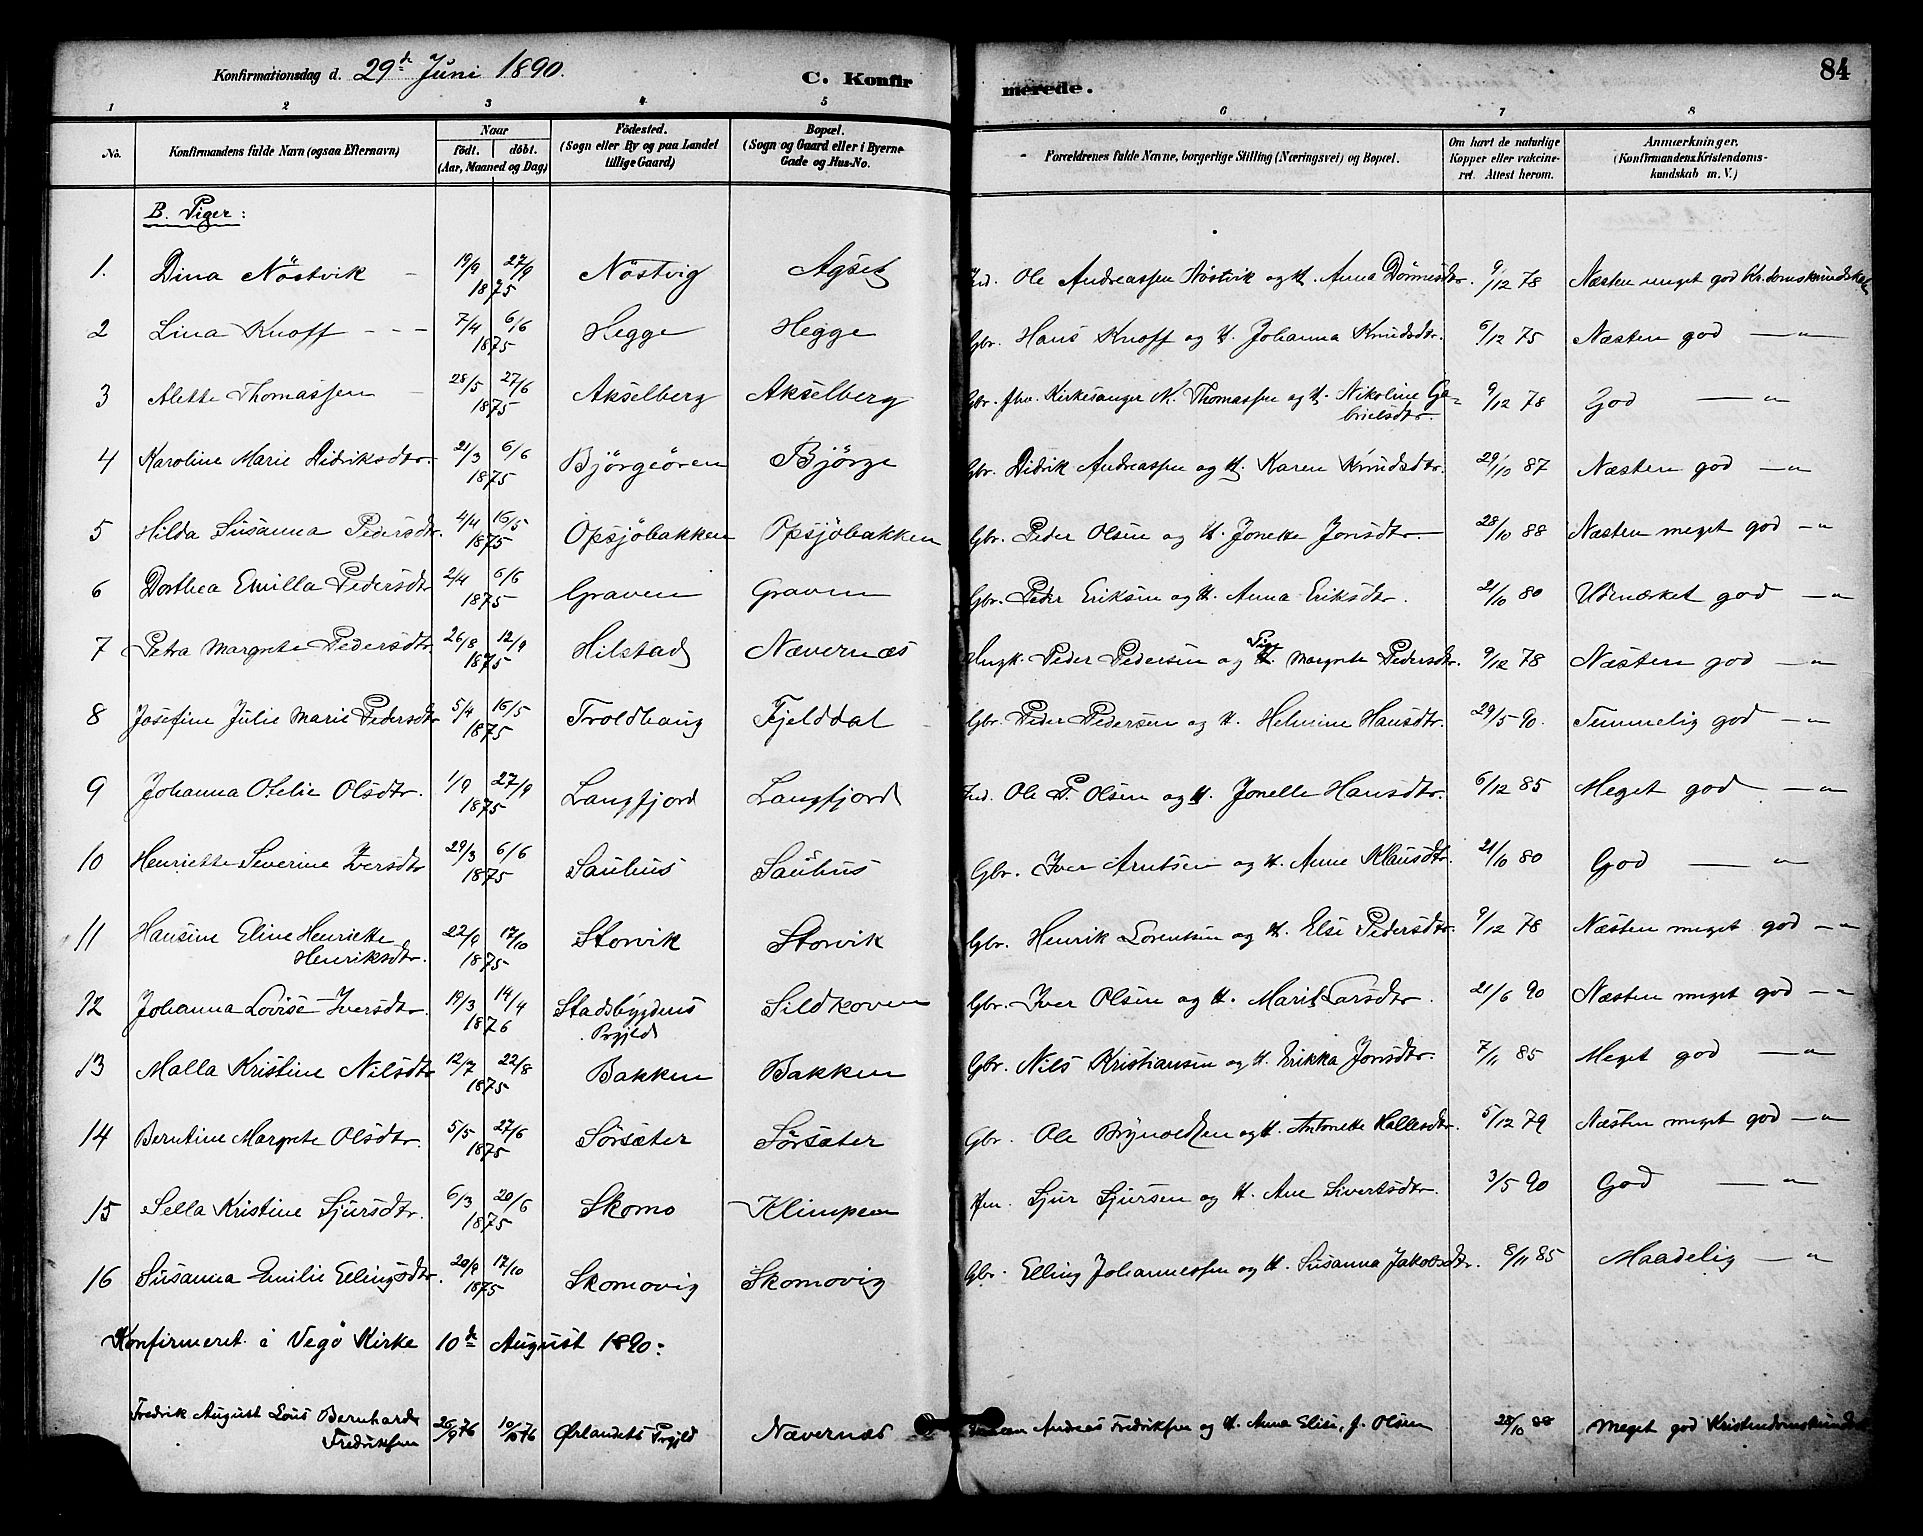 Konfirmationsdag d. 29de Juni 1890. C. Konfirmerede. 84
1 2 3 4 5 6 7 8
No. Konfirmandens fulde Navn (ogsaa Efternavn) Naar født. døbt. (Aar, Maaned og Dag) Fødested. (Sogn eller By og paa Landet tillige Gaard) Bopæl. (Sogn og Gaard eller i Byerne Gade og Hus-No. Forældrenes fulde Navne, borgerlige Stilling (Næringsvei) og Bopæl. Om havt de naturlige Kopper eller vakcineret. Attest herom. Anmærkninger. (Konfirmandens Kristendomskundskab m. V.)
B. Piger:
1. Dina Nöstvik 19/9 27/9 1875 Nöstvig Agset Ind. Ole Andreassen Nöstvik og H. Anna 9/12 78 Næsten meget god Kr.domskundskab
2 Lina Knoff 7/4 6/6 1875 Hegge Hegge Gbr. Hans Knoff og H. Johanna Knudsdtr. 6/12 75 Næsten god — " —
3 Alette Thomassen 28/5 27/6 1875 Akselberg Akselberg Gbr. fhv. Kirkesanger N. Thomassen og H. Nikoline Gabrielsdtr. 9/12 78 God — "
4 Karoline Marie Didriksdtr. 21/3 6/6 1875 Bjørgeören Bjørge Gbr. Didrik Andreassen og H. Karen Knudsdtr. 29/10 87 Næsten god — "
5 Hilda Susanna Pedersdtr. 4/4 16/5 1875 Opsjöbakken Opsjöbakken Gbr. Peder Olsen og H. Jonette Jonsdtr. 28/10 88 Næsten meget god — "
6 Dorthea Emilla Pedersdtr 2/4 6/6 1875 Graven Graven Gbr. Peder Eriksen og H. Anna Eriksdtr. 21/10 80 Udmærket god — "
7 Petra Margrete Pedersdtr. 26/8 12/9 1875 Hilstad Nævernæs Ungk. Peder Pedersen og Pige Margrete Pedersdtr. 9/12 78 Næsten god — "
8 Josefine Julie Marie Pedersdtr 5/4 16/5 1875 Troldhaug Fjelddal Gbr. Peder Pedersen og H. Helmine Hansdtr. 29/5 90. Temmelig god — "
9 Johanna Otelie Olsdtr. 1/9 27/9 1875 Langfjord Langfjord Ind. Ole P. Olsen og H. Jonette Hansdtr. 6/12 85 Meget god — "
10 Henriette Severine Iversdtr 29/3 6/6 1875 Sauhus Sauhus Gbr. Iver Arntsen og H. Anne Klausdtr. 21/10 80 God — "
11 Hansine Eline Henriette Henriksdtr. 22/9 17/10 1875 Storvik Storvik Gbr. Henrik Lorentsen og H. Else Pedersdtr. 9/12 78 Næsten meget god — "
12 Johanna Lovise Iversdtr. 19/3 14/4 1876 Stadsbygdens Prgjeld Sildkoven Gbr. Iver Olsen og H. Marit Larsdtr. 21/6 90 Næsten meget god — "
13 Malla Kristine Nilsdtr 12/7 22/8 1875 Bakken Bakken Gbr. Nils Kristiansen og H. Erikka Jonsdtr. 7/11 85 Meget god — "
14 Berntine Margrete Olsdtr. 5/5 27/6 1875 Sörsæter Sörsæter Gbr. Ole Brynoldsen og H. Antonette Hallesdtr. 5/12 79 Næsten meget god — "
15 Sella Kristine Sjursdtr. 6/3 20/6 1875 Skomo Klimpen Sjur Sjursen og H. Ane Sivertsdtr. 3/5 90 God — "
16 Susanna Emilie Ellingsdtr. 20/9 17/10 1875 Skomovig Skomovig Gbr. Elling Johannessen og H. Susanna Jakobsdtr. 8/11 85 Maadelig — "
Konfirmeret i Vegø Kirke 10de August 1890:
Fredrik August Lous Bernhard Fredriksen 26/9 76 10/10 76 Ørlandets Prgjeld Nævernæs Andreas Fredriksen og H. Anna Elise, f. Olsen 28/10 88 Meget god Kristendomskundskab